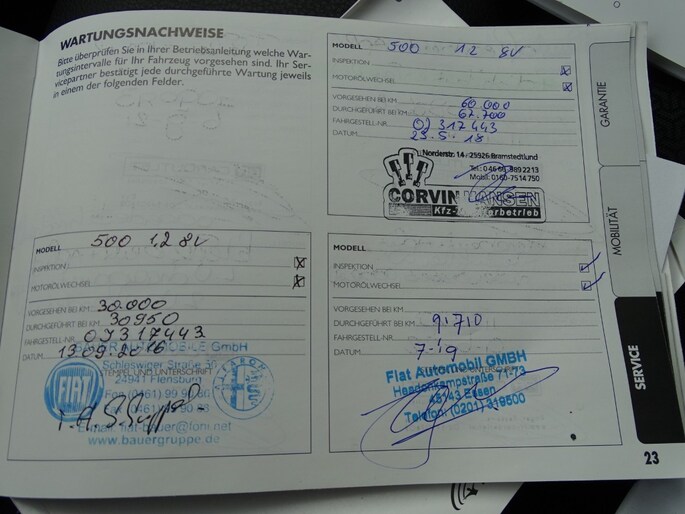 WARTUNGSNACHWEISE
Bitte überprüfen Sie in Ihrer Betriebsanleitung welche War-
tungsintervalle für Ihr Fahrzeug vorgesehen sind. Ihr Ser-
vicepartner bestätigt jede durchgeführte Wartung jeweils
in einem der folgenden Felder.
MODELL 500 1,2 8V
INSPEKTION X
MOTORÖLWECHSEL X
VORGESEHEN BEI KM 30.000
DURCHGEFÜHRT BEI KM 30950
FAHRGESTELL-NR. 0J317443
DATUM 13.09.2016
STEMPEL UND UNTERSCHRIFT
GmbH
FIAT
Schleswiger Straße
24941 Flensburg
Fon (0461) 99 9
0461
E-mail: fiat-bauer@foni.net
www.bauergruppe.de
MODELL 500 12 8V
INSPEKTION X
MOTORÖLWECHSEL X
VORGESEHEN BEI KM 60.000
DURCHGEFÜHRT BEI KM 67.700
FAHRGESTELL-NR. 0J317443
DATUM 23.5.18
Norderstr. 14 / 25926 Bramstedtlund
Mobil: 0160-7514750
CORVIN HANSEN
Kfz-
MODELL
INSPEKTION ✓
MOTORÖLWECHSEL ✓
VORGESEHEN BEI KM
DURCHGEFÜHRT BEI KM 91710
FAHRGESTELL-NR.
DATUM 7-19
Fiat Automobil GMBH
45143 Essen
Telefon: (0201) 319500
GARANTIE
MOBILITÄT
SERVICE
23